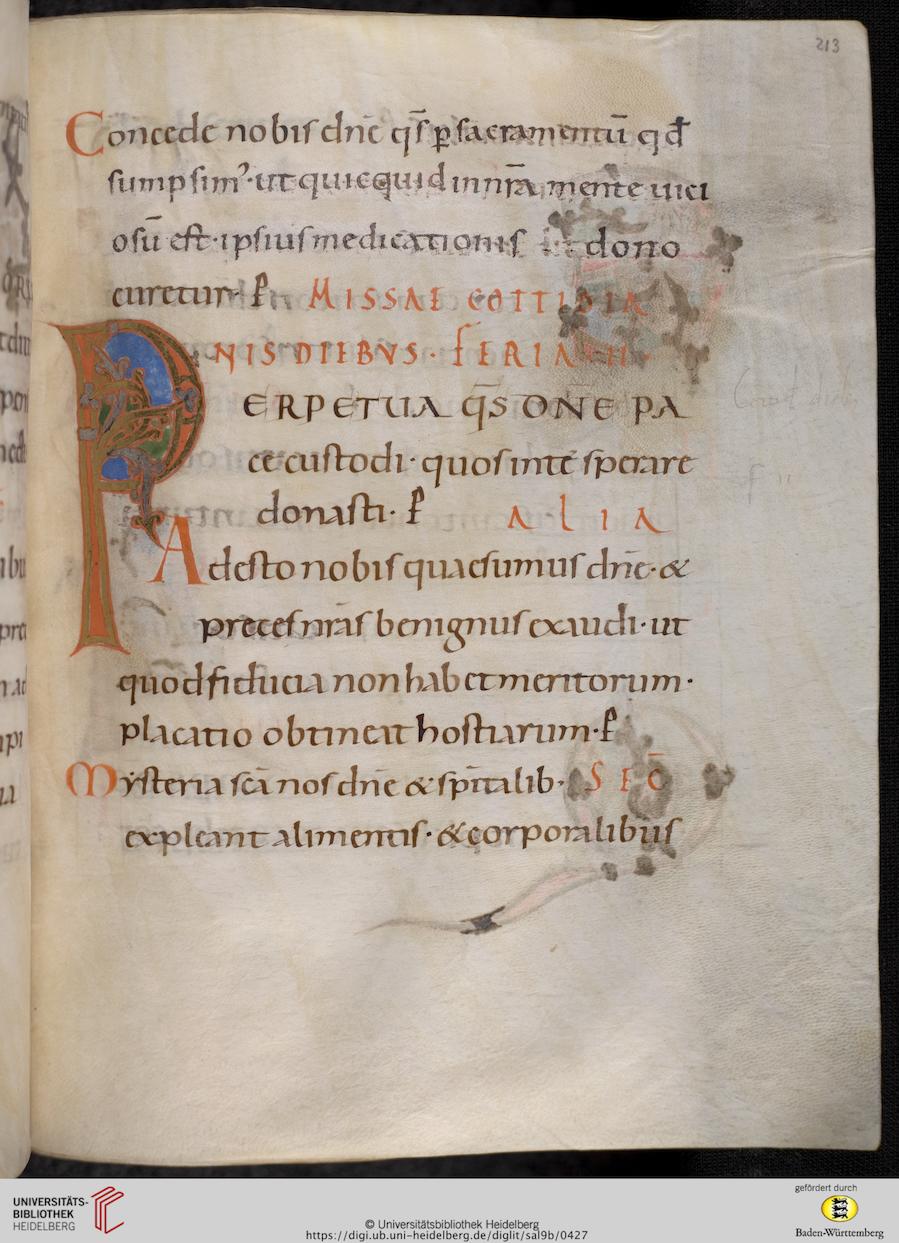 213
Concede nobis dn̄e qs̄ ꝑ sacramentū qđ
sumpsim᾽· ut quicquid in nr̄a mente uici
osū est· ipsius medicationis dono
curetur· P̄ MISSAE COTTIDIA
NIS DIEBVS· FERIA II·
PERPETUA Q̄S DŌNE PA
ce custodi· quos in te sperare
donasti· P̄ ALIA
Adesto nobis quaesumus dn̄e· &
preces nr̄as benignus exaudi· ut
quod fiducia non habet meritorum·
placatio obtineat hostiarum· P̄
Mysteria scā nos dn̄e & sp̄italib· SEC̄
expleant alimentis· & corporalibus
UNIVERSITÄTS-
BIBLIOTHEK
HEIDELBERG
© Universitätsbibliothek Heidelberg
https://digi.ub.uni-heidelberg.de/diglit/sal9b/0427
gefördert durch
Baden-Württemberg